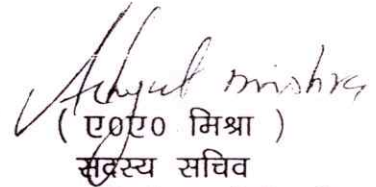 Achyut Mishra
( ए0ए0 मिश्रा )
सदस्य सचिव